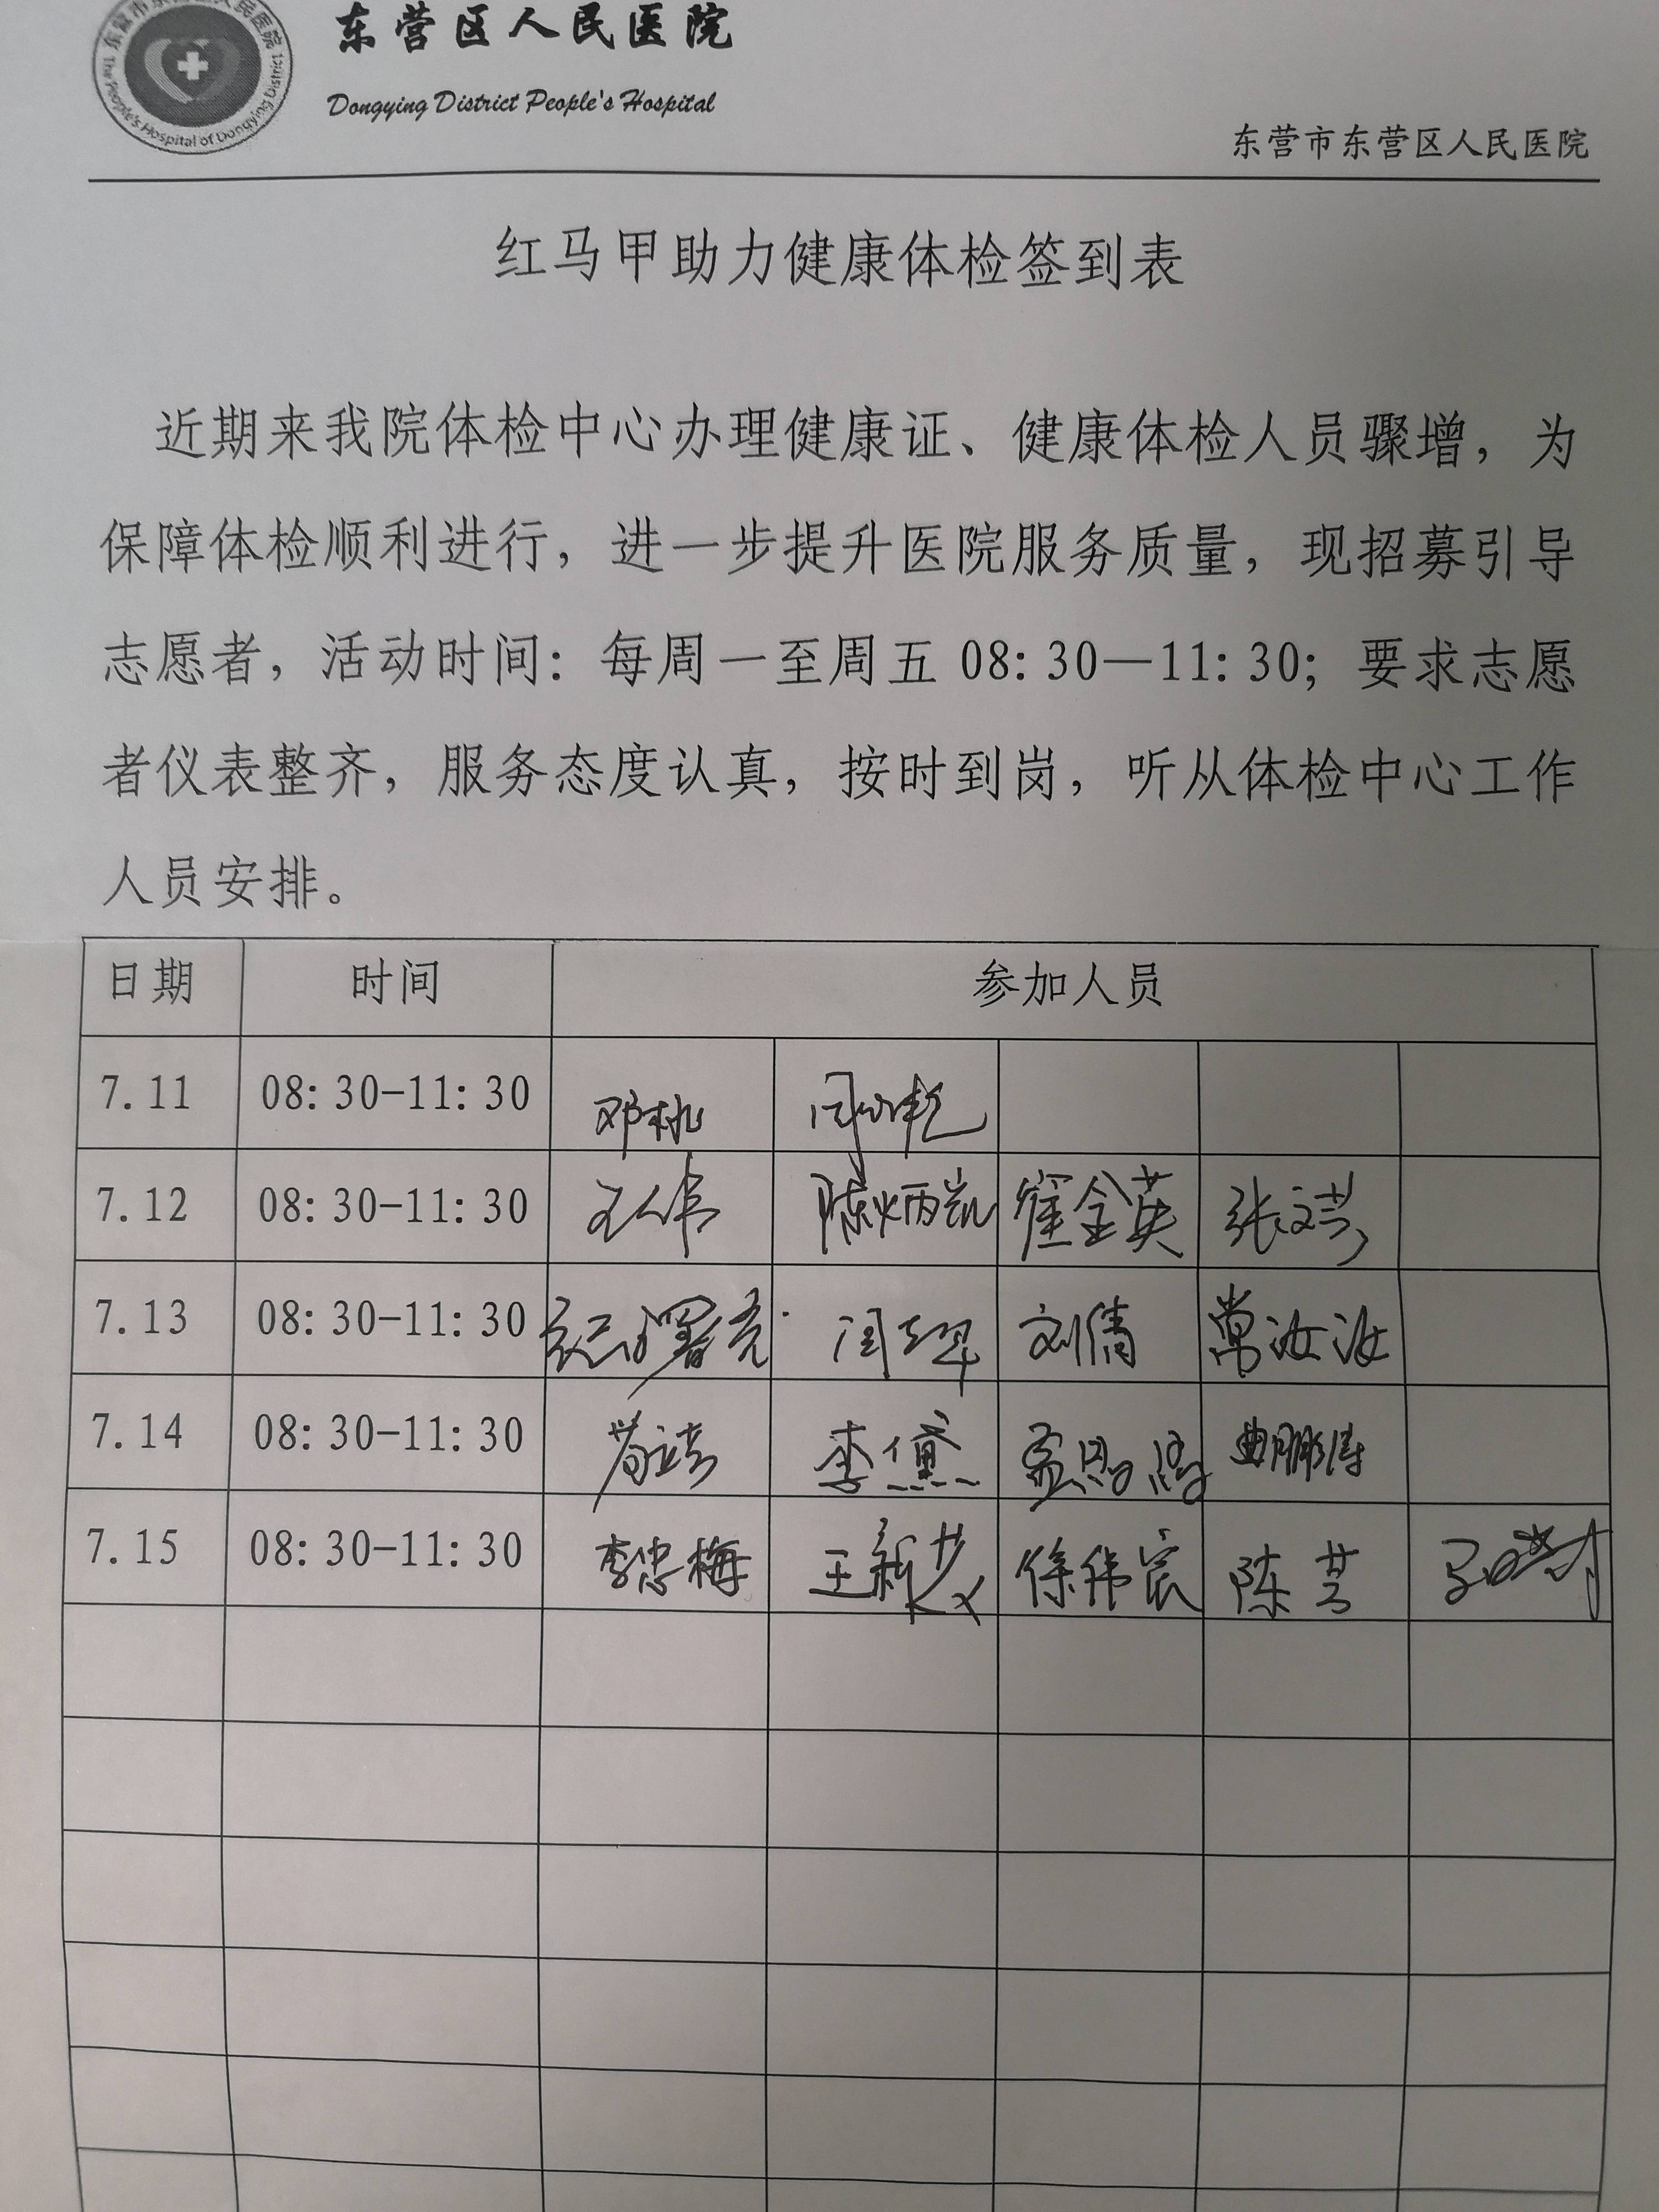 东营区人民医院
Dongying District People's Hospital
The People's Hospital of Dongying District
东营市东营区人民医院
红马甲助力健康体检签到表
近期来我院体检中心办理健康证、健康体检人员骤增，为
保障体检顺利进行，进一步提升医院服务质量，现招募引导
志愿者，活动时间：每周一至周五 08:30—11:30；要求志愿
者仪表整齐，服务态度认真，按时到岗，听从体检中心工作
人员安排。
日期 时间 参加人员
7.11 08:30-11:30 邓桃
7.12 08:30-11:30 陈炳凯 崔金英 张文芸
7.13 08:30-11:30 刘倩 常汝汝
7.14 08:30-11:30 李黛 曲鹏涛
7.15 08:30-11:30 李忠梅 王新 徐伟宸 陈芸